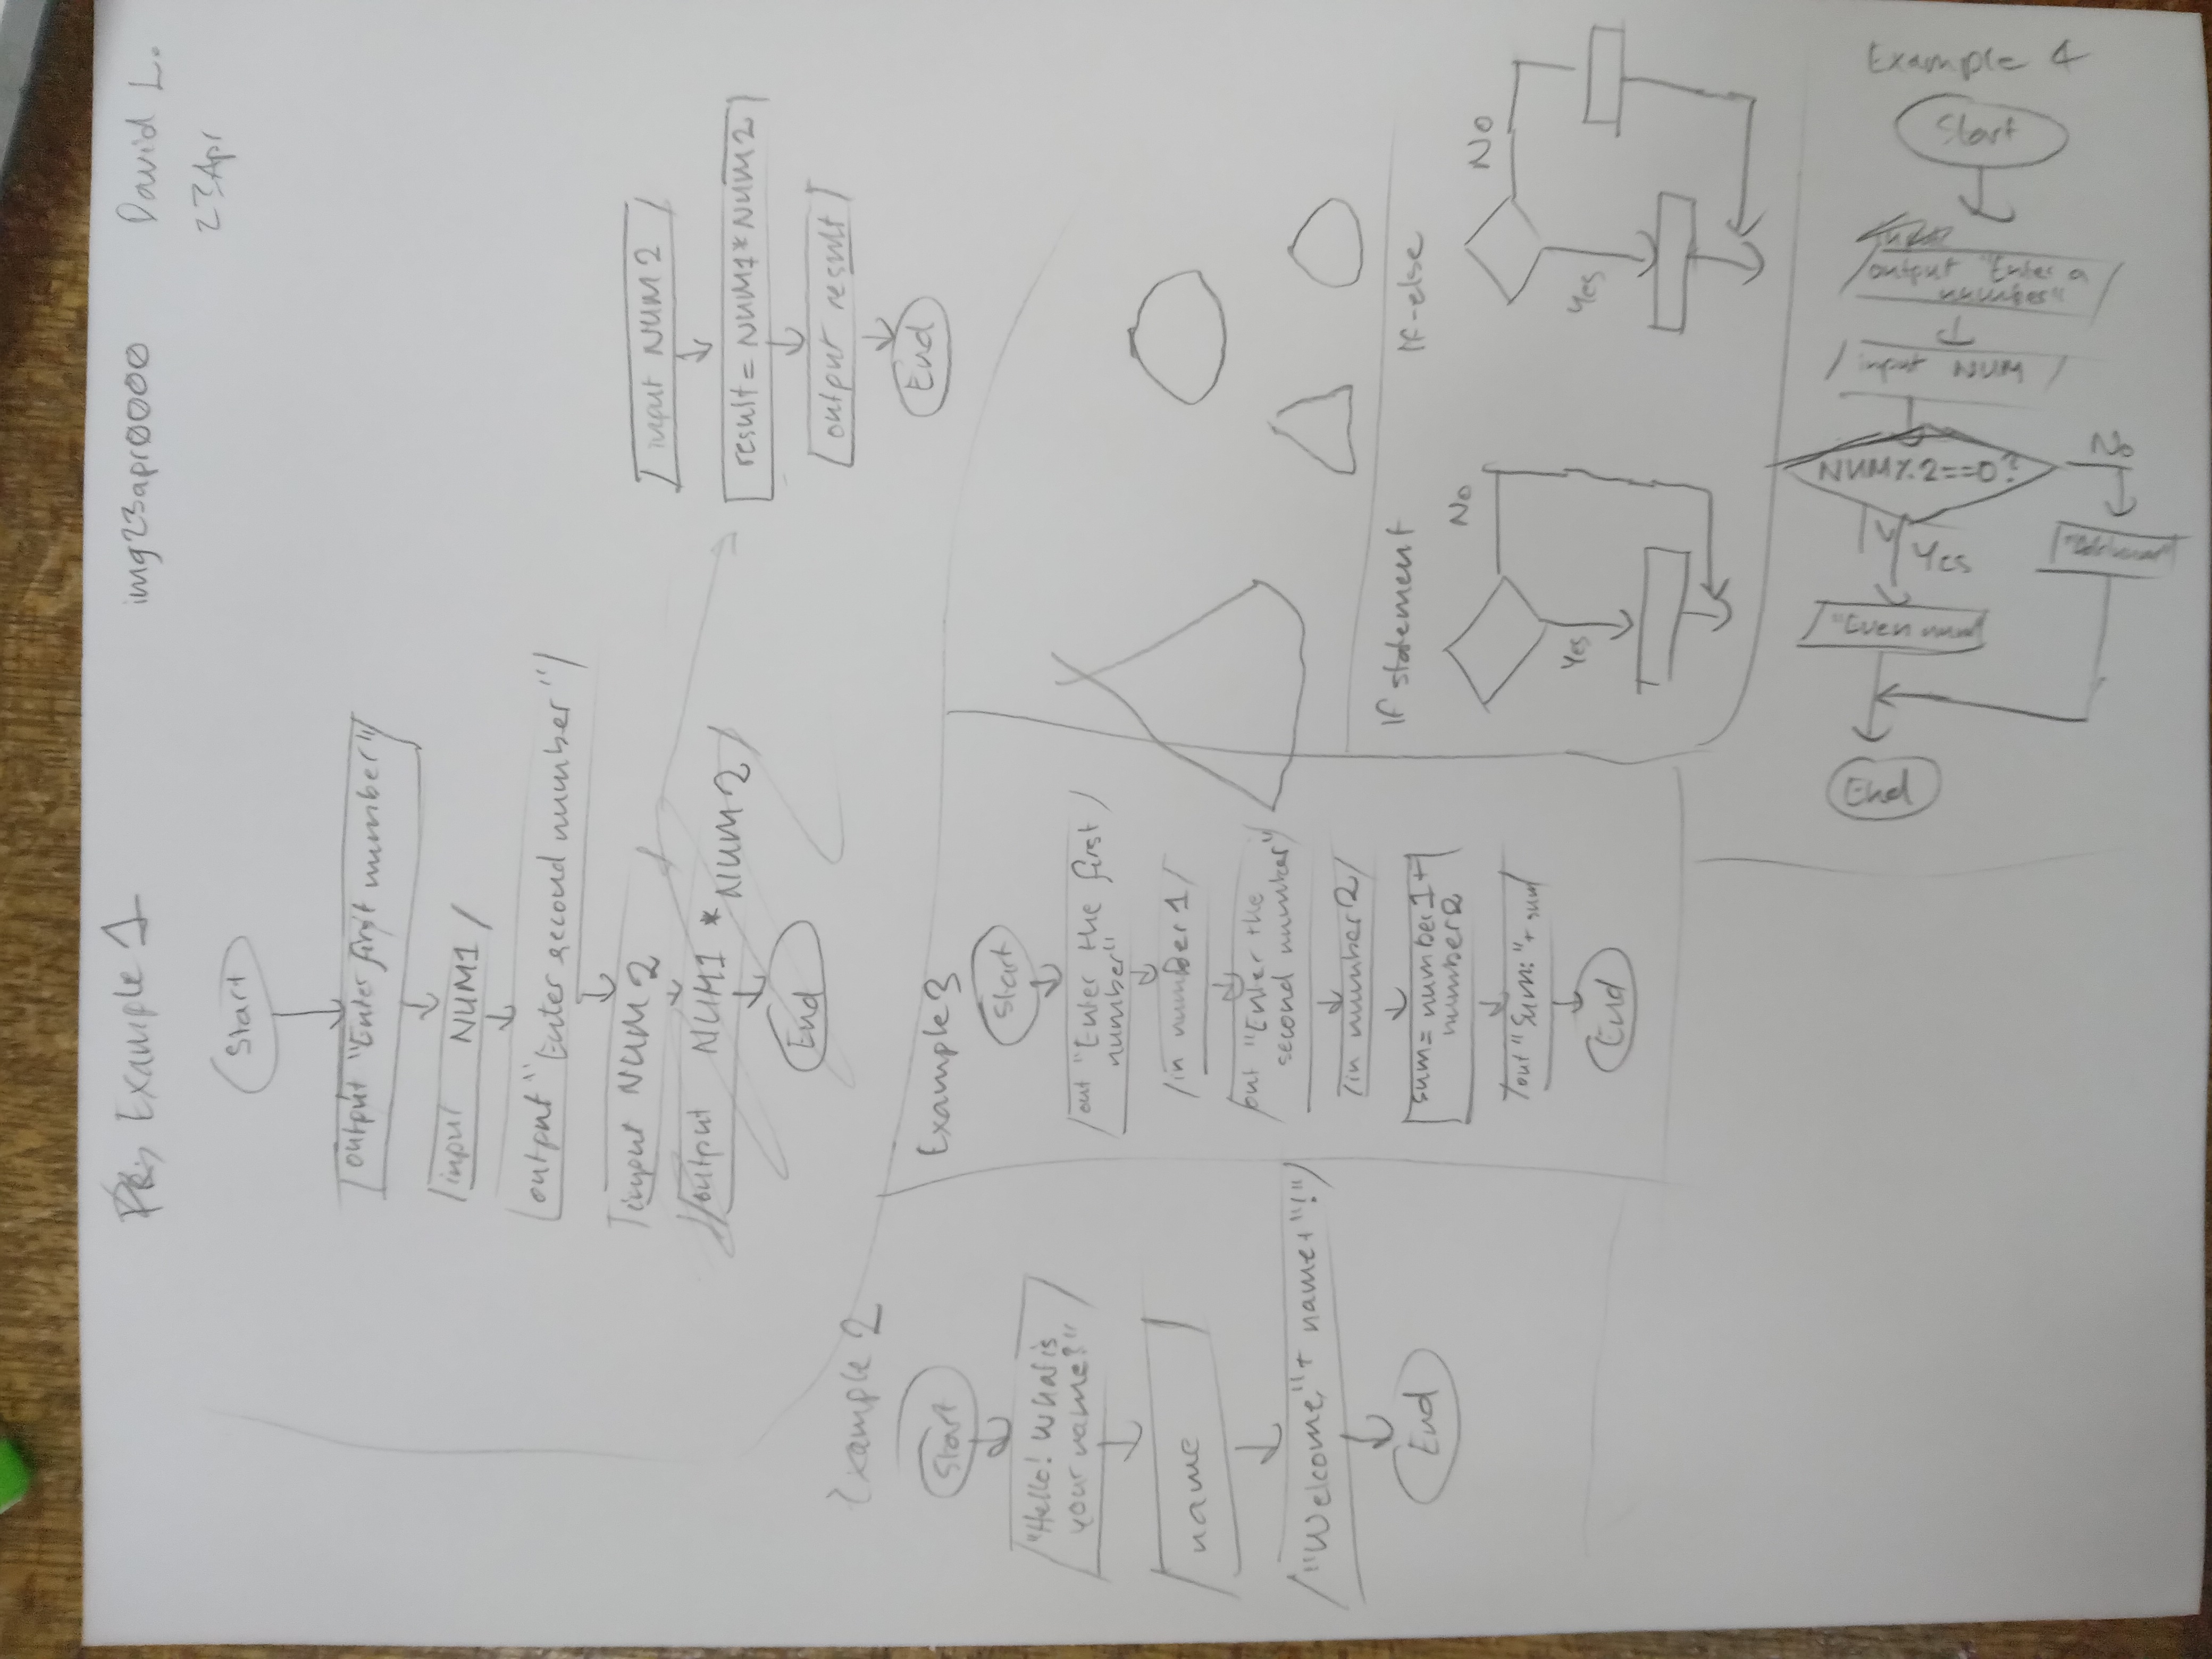 Example 1
img23apr0000
David L.
23Apr
Start
output "Enter first number"
input NUM1
output "Enter second number"
input NUM2
output NUM1 * NUM2
End
input NUM2
result = NUM1*NUM2
output result
End
Example 2
Start
"Hello! What is
your name?"
name
"Welcome,"+ name+"!"
End
Example 3
Start
out "Enter the first
number"
in number1
out "Enter the
second number"
in number2
sum= number1+
number2
out "Sum: "+ sum
End
If statement
No
Yes
If-else
No
Yes
Example 4
Start
output "Enter a
number"
input NUM
NUM%2==0?
Yes
No
"Even
End